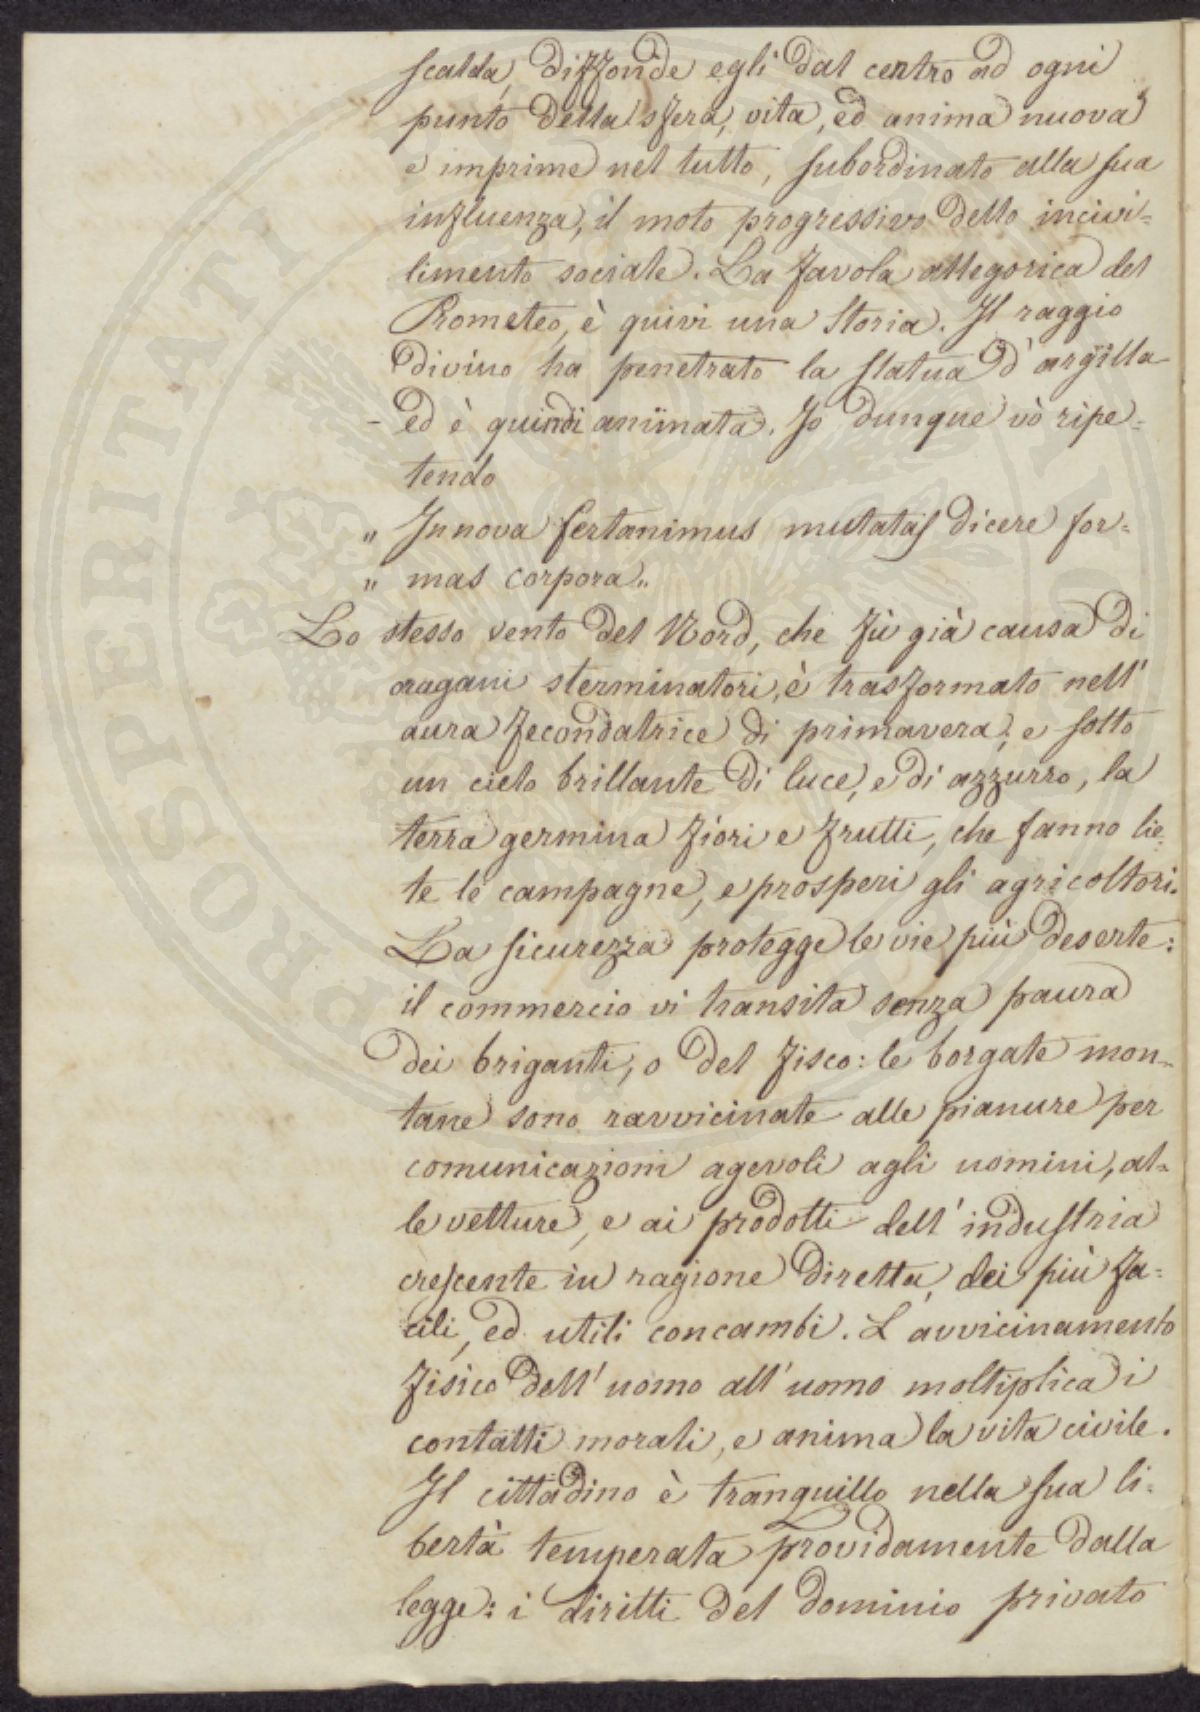 scalda, diffonde egli dal centro ad ogni
punto della sfera, vita, ed anima nuova
e imprime nel tutto, subordinato alla sua
influenza, il moto progressivo dello incivi=
limento sociale. La favola allegorica del
Prometeo, è quivi una Storia. Il raggio
divino ha penetrato la statua d'argilla
- ed è quindi animata. Io dunque vò ripe=
tendo
" In nova fertanimus mutatas dicere for=
" mas corpora"
Lo stesso vento del Nord, che fù già causa di
oragani sterminatori, è trasformato nell'
aura fecondatrice di primavera, e sotto
un cielo brillante di luce, e di azzurro, la
terra germina fiori e frutti, che fanno lie=
te le campagne, e prosperi gli agricoltori.
La sicurezza protegge le vie più deserte:
il commercio vi transita senza paura
dei briganti, o del fisco: le borgate mon=
tane sono ravvicinate alle pianure per
comunicazioni agevoli agli uomini, al=
le vetture, e ai prodotti dell'industria
crescente in ragione diretta, dei più fa=
cili, ed utili concambi. L'avvicinamento
fisico dell'uomo all'uomo moltiplica i
contatti morali, e anima la vita civile.
Il cittadino è tranquillo nella sua li=
bertà temperata providamente dalla
legge: i diritti del dominio privato
PROSPERITATI